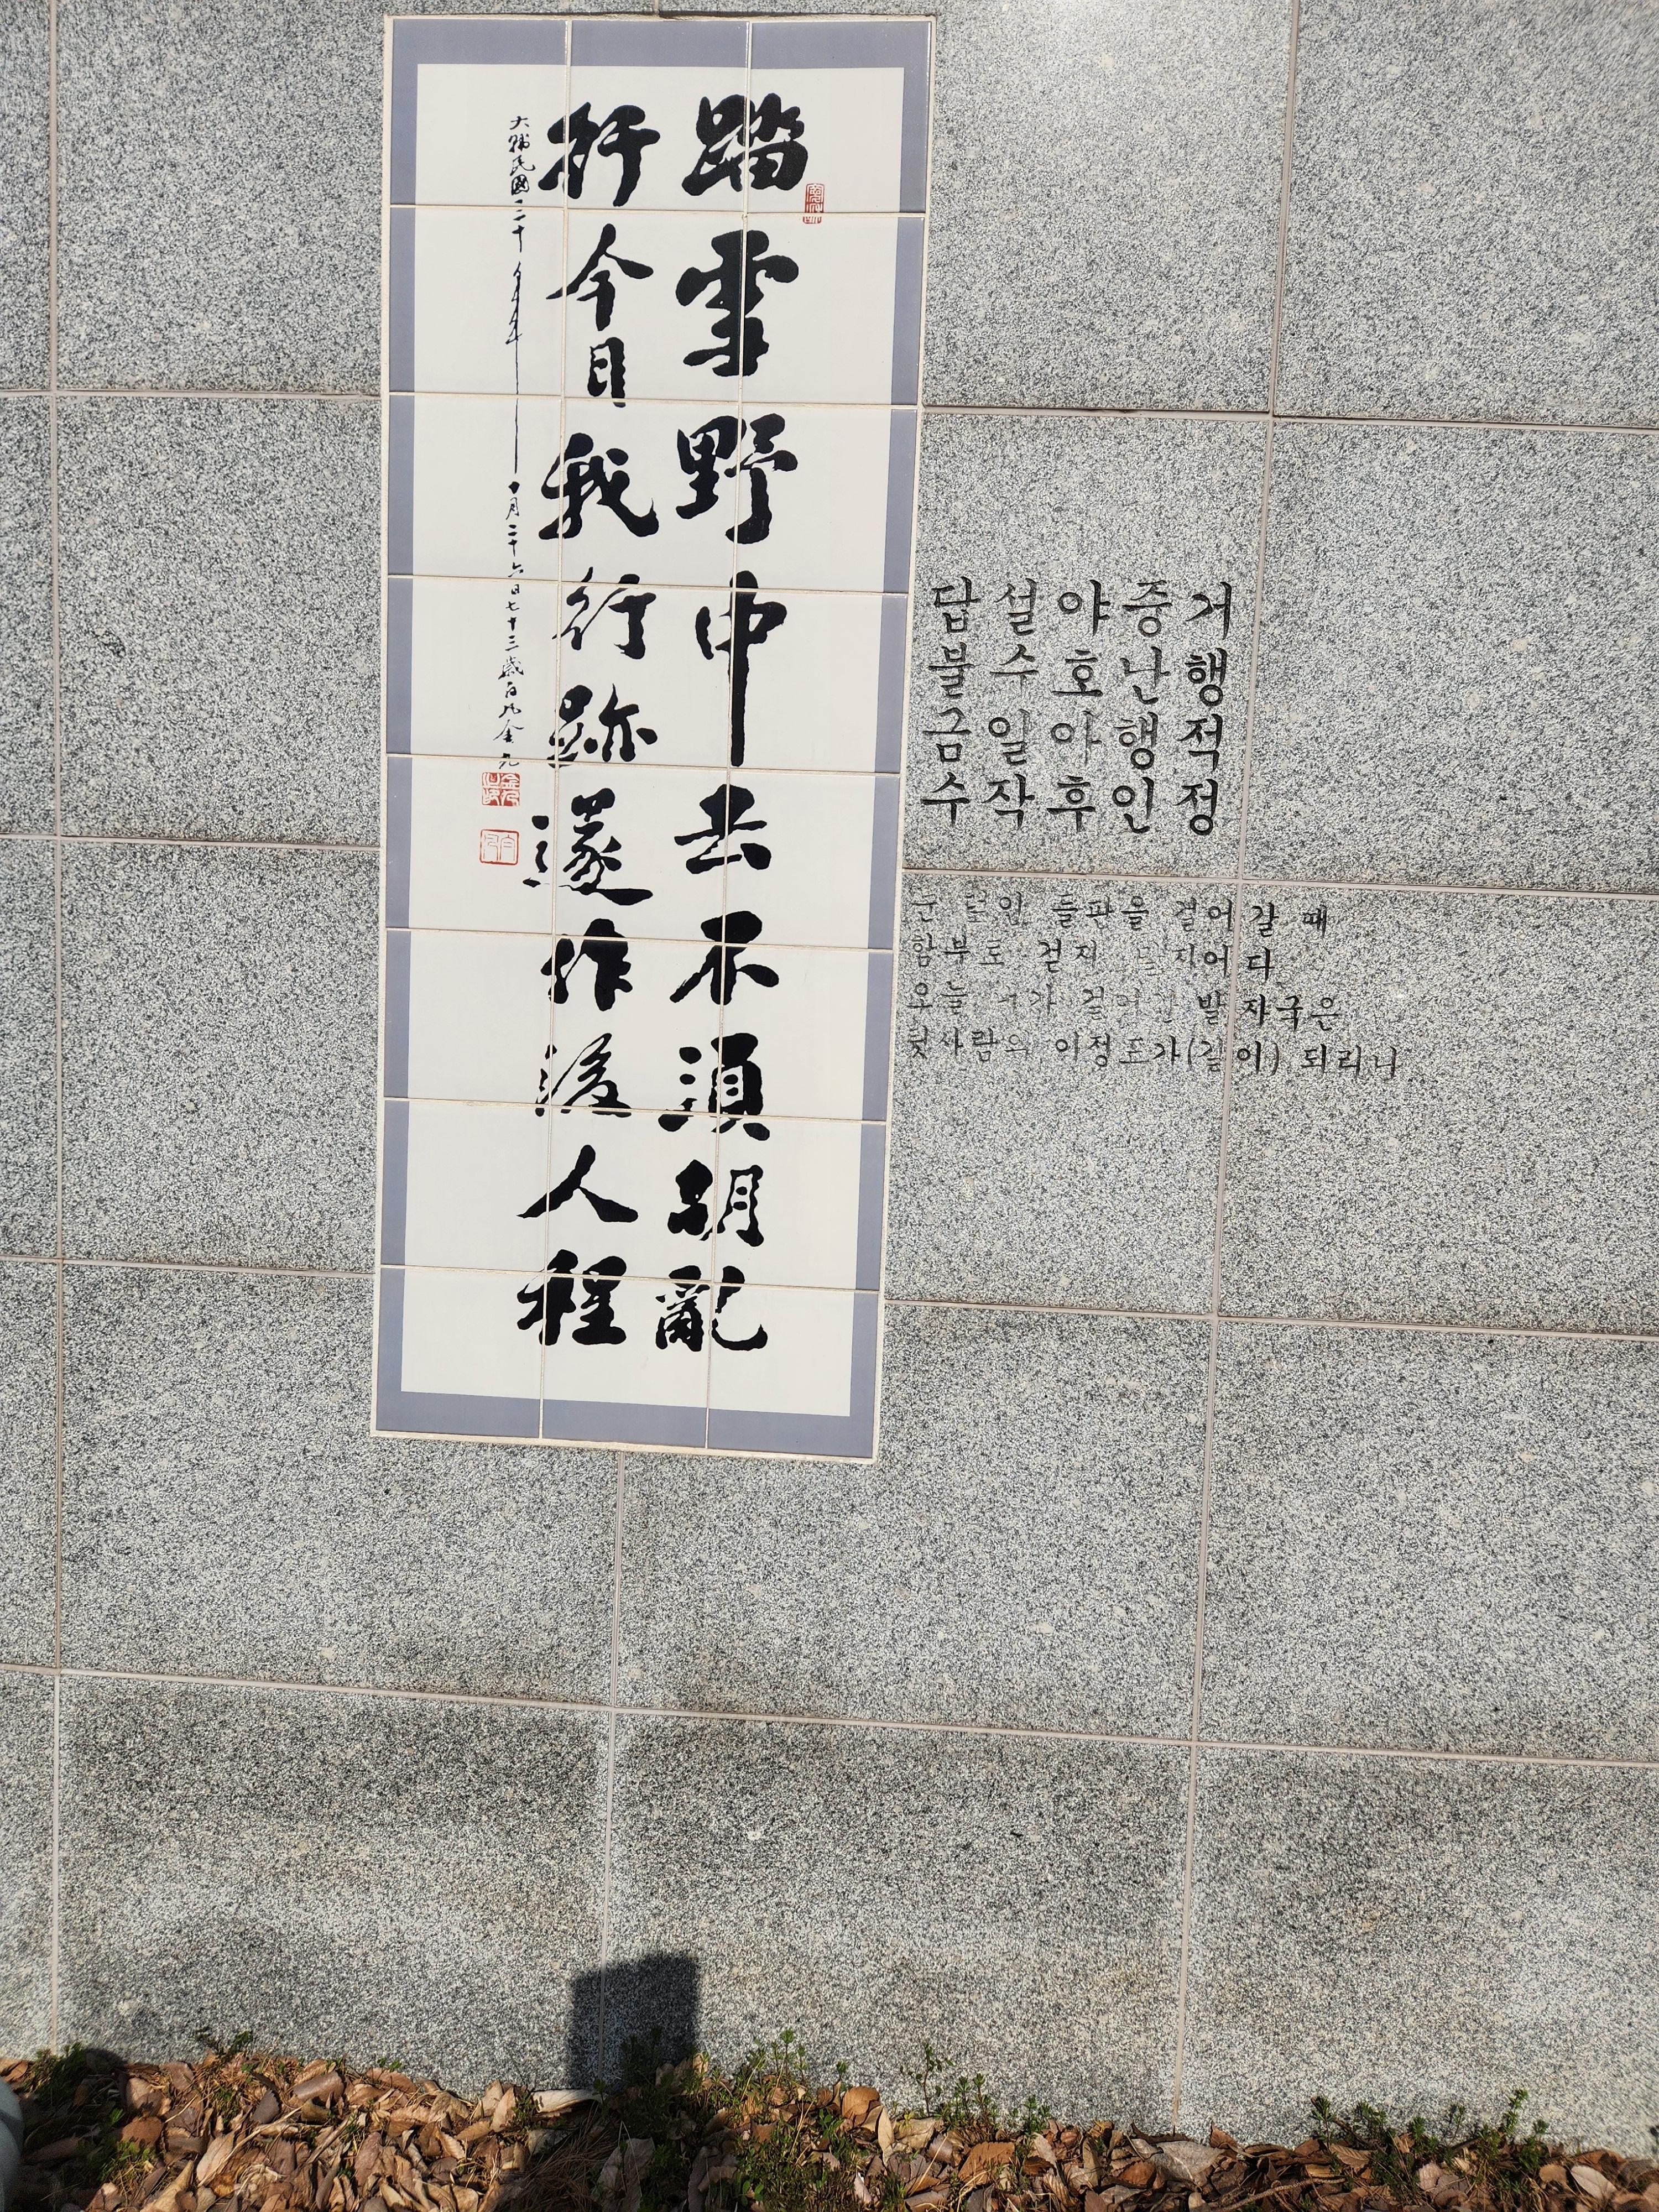 踏雪野中去不須胡亂
行今日我行跡遂作後人程
大韓民國三十年十月二十六日七十三歲白凡金九
답설야중거
불수호난행
금일아행적
수작후인정
눈 덮인 들판을 걸어갈 때
함부로 걷지 말지어다
오늘 내가 걸어간 발자국은
뒷사람의 이정표가(길이) 되리니